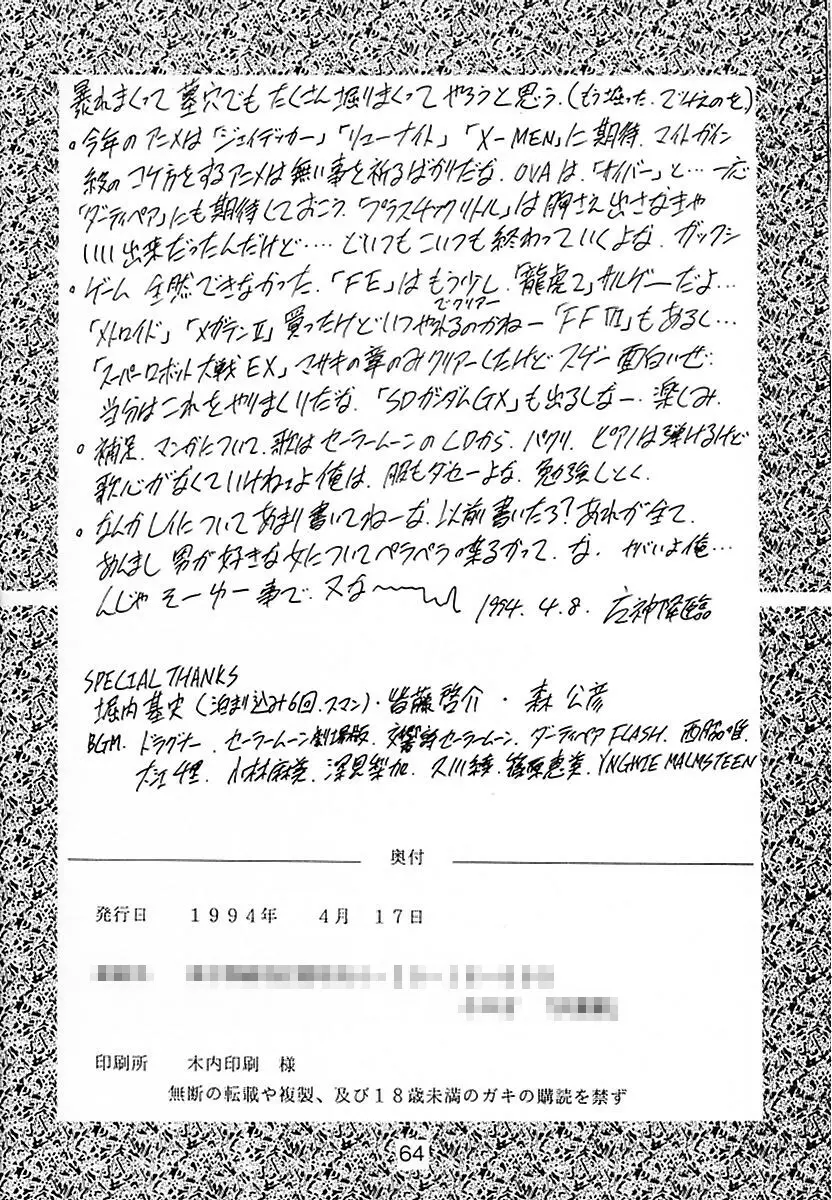 暴れまくって墓穴でもたくさん掘りまくってやろうと思う。(もう掘った。でかえのを)
。今年のアニメは「ジェイデッカー」「リューナイト」「X-MEN」に期待。マイトガイン
級のコケ方をするアニメは無い事を祈るばかりだな。OVAは、「ガイバー」と…一応
「ダーティペア」にも期待しておこう。「プラスチックリトル」は胸さえ出さなきゃ
いい出来だったんだけど…… どいつもこいつも終わっていくよな。ガックシ
。ゲーム 全然できなかった。「FE」はもう少しでクリアー。「龍虎2」サルゲーだよ…
「メトロイド」「メガテンⅡ」買ったけどいつやれるのかねー「FFⅥ」もあるし…
「スーパーロボット大戦EX」マサキの章のみクリアーしたけどスゲー面白いぜ。
当分はこれをやりまくりだな。「SDガンダムGX」も出るしなー。楽しみ。
。補足。マンガについて。歌はセーラームーンのCDから。パクリ。ピアノは弾けるけど
歌心がなくていけねェよ俺は。服もダセーよな。勉強しとく。
。なんかレイについてあまり書いてねーな。以前書いたろ?あれが全て。
あんまし男が好きな女についてペラペラ喋るかって。な。ヤバいよ俺…
んじゃそーゆー事で。又な〜 1994.4.8. 右神降臨
SPECIAL THANKS
堀内基史(泊まり込み6回。スマン)・皆藤啓介・森公彦
BGM. ドラグナー. セーラームーン劇場版. 交響詩セーラームーン. ダーティペアFLASH. 西脇唯.
大江千里. 小林麻美. 深見梨加. 久川綾. 篠原恵美. YNGWIE MALMSTEEN
奥付
発行日 1994年 4月 17日
印刷所 木内印刷 様
無断の転載や複製、及び18歳未満のガキの購読を禁ず
64